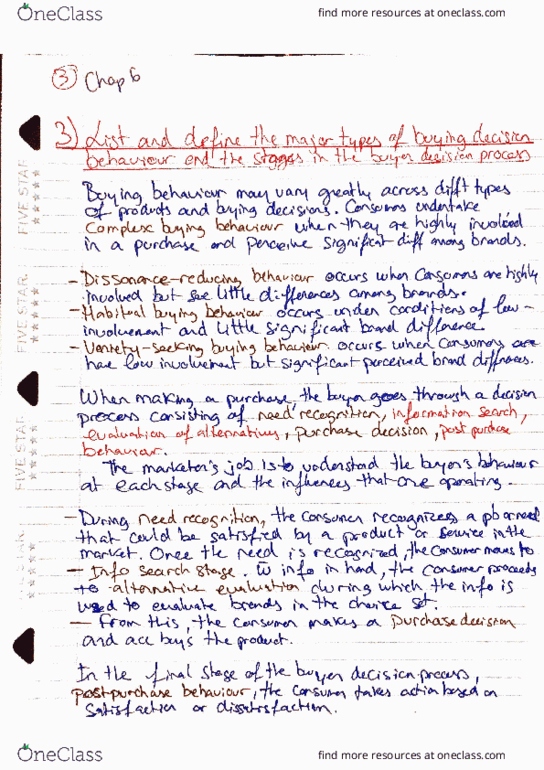 OneClass
find more resources at oneclass.com
③ Chap 6
3) List and define the major types of buying decision
behaviour and the stages in the buyer decision process
FIVE STAR.
Buying behaviour may vary greatly across difft types
of products and buying decisions. Consumers undertake
Complex buying behaviour when they are highly involved
in a purchase and perceive significant diff among brands.
FIVE STAR.
- Dissonance-reducing behaviour occurs when Consumers are highly
involved but see little differences among brands.
- Habitual buying behaviour occurs under conditions of low-
involvement and little significant brand difference.
- Variety-seeking buying behaviour occurs when Consumers are
have low involvement but significant perceived brand differences.
FIVE STAR.
When making a purchase, the buyer goes through a decision
process consisting of need recognition, information search,
evaluation of alternatives, purchase decision, post purchase
behaviour.
The marketer's job is to understand the buyer's behaviour
at each stage and the influences that are operating.
- During need recognition, the Consumer recognizes a pb or need
that could be satisfied by a product or service in the
market. Once the need is recognized, the Consumer moves to
- Info search stage. W info in hand, the consumer proceeds
to alternative evaluation during which the info is
used to evaluate brands in the choice set.
- From this, the consumer makes a purchase decision
and buys the product.
In the final stage of the buyer decision process,
post-purchase behaviour, the Consumer takes action based on
satisfaction or dissatisfaction.
OneClass
find more resources at oneclass.com